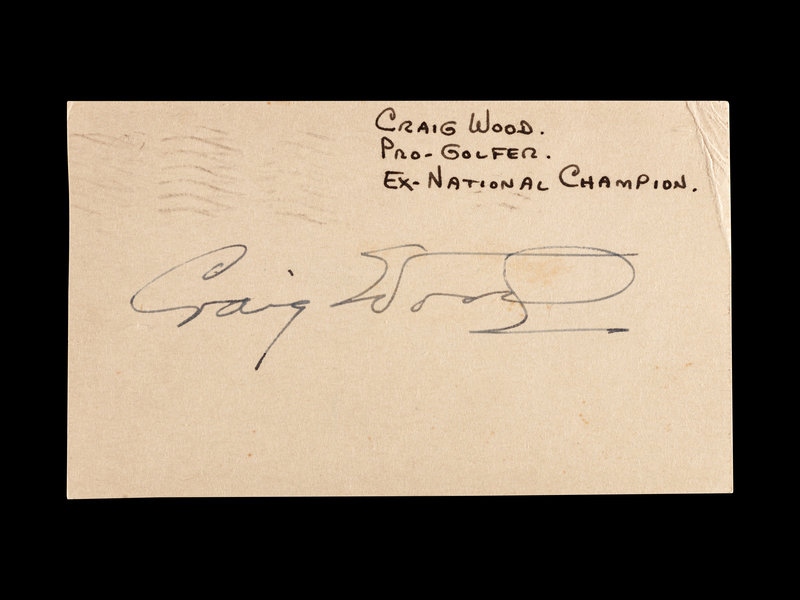 CRAIG WOOD.
PRO-GOLFER.
EX-NATIONAL CHAMPION.
Craig Wood